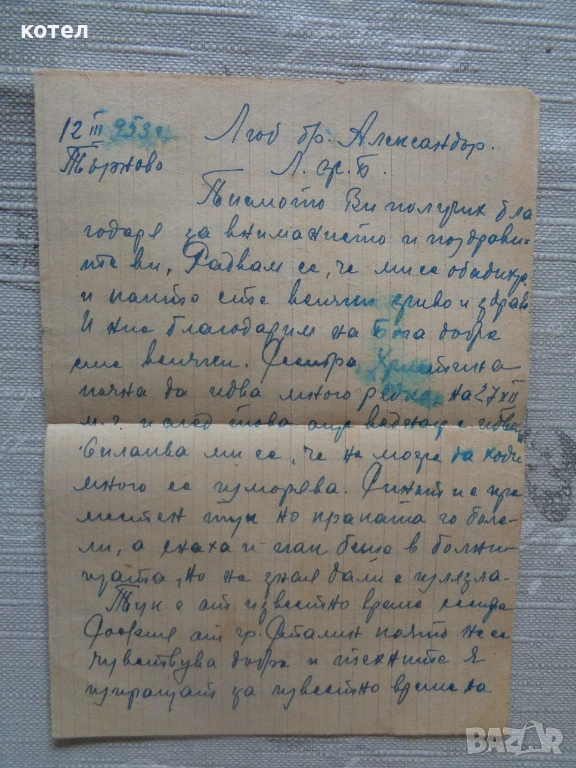 котел
12 III 953 г.
Търново
Люб бр. Александър.
Л. гр. Б.
Писмото Ви получих бла
годаря за вниманието и поздрави-
те ви, Радвам се, че ми се обадихте
и който сте всички живо и здрави
И ние благодарим на Бога добре
сме всички. Сестра Християна
почна да идва много рядко, на 27 XII
м.г. и след това още веднаж е идва
Оплаква ми се, че не може да ходи
много се изморява. Синът и е пре
местен тук но краката го боле-
ли, а снаха и пак беше в болни-
цата, но не зная дали е излязла.
Тук е от известно време сестра
София от гр. Сталин която не се
чувствува добре и техните я
изпращат за известно време да
BAZAR